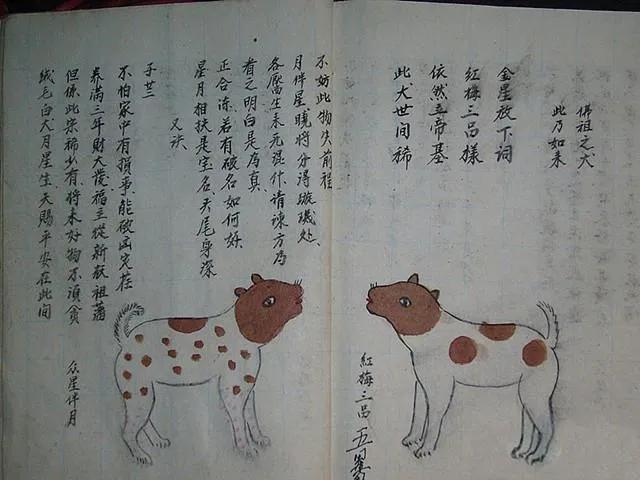 佛祖之犬
此乃如来
金星放下詞
紅梅三吕樣
依然立帝基
此犬世间稀
紅梅三吕 五
不妨此物失前程
月伴星曉將分得璇璣处、
各曆生来无混什请谏方為
看之明白是為真、
正合谏若有破名如何好、
星月相扶是宝名天尾身深
又訣
子廿二
不怕家中有損事、能破凶灾在
养满三年財大發福主從新叙祖
但係此宗稀少有、將未好物不須貪
绒毛白犬月星生天賜平安在此间
众星伴月